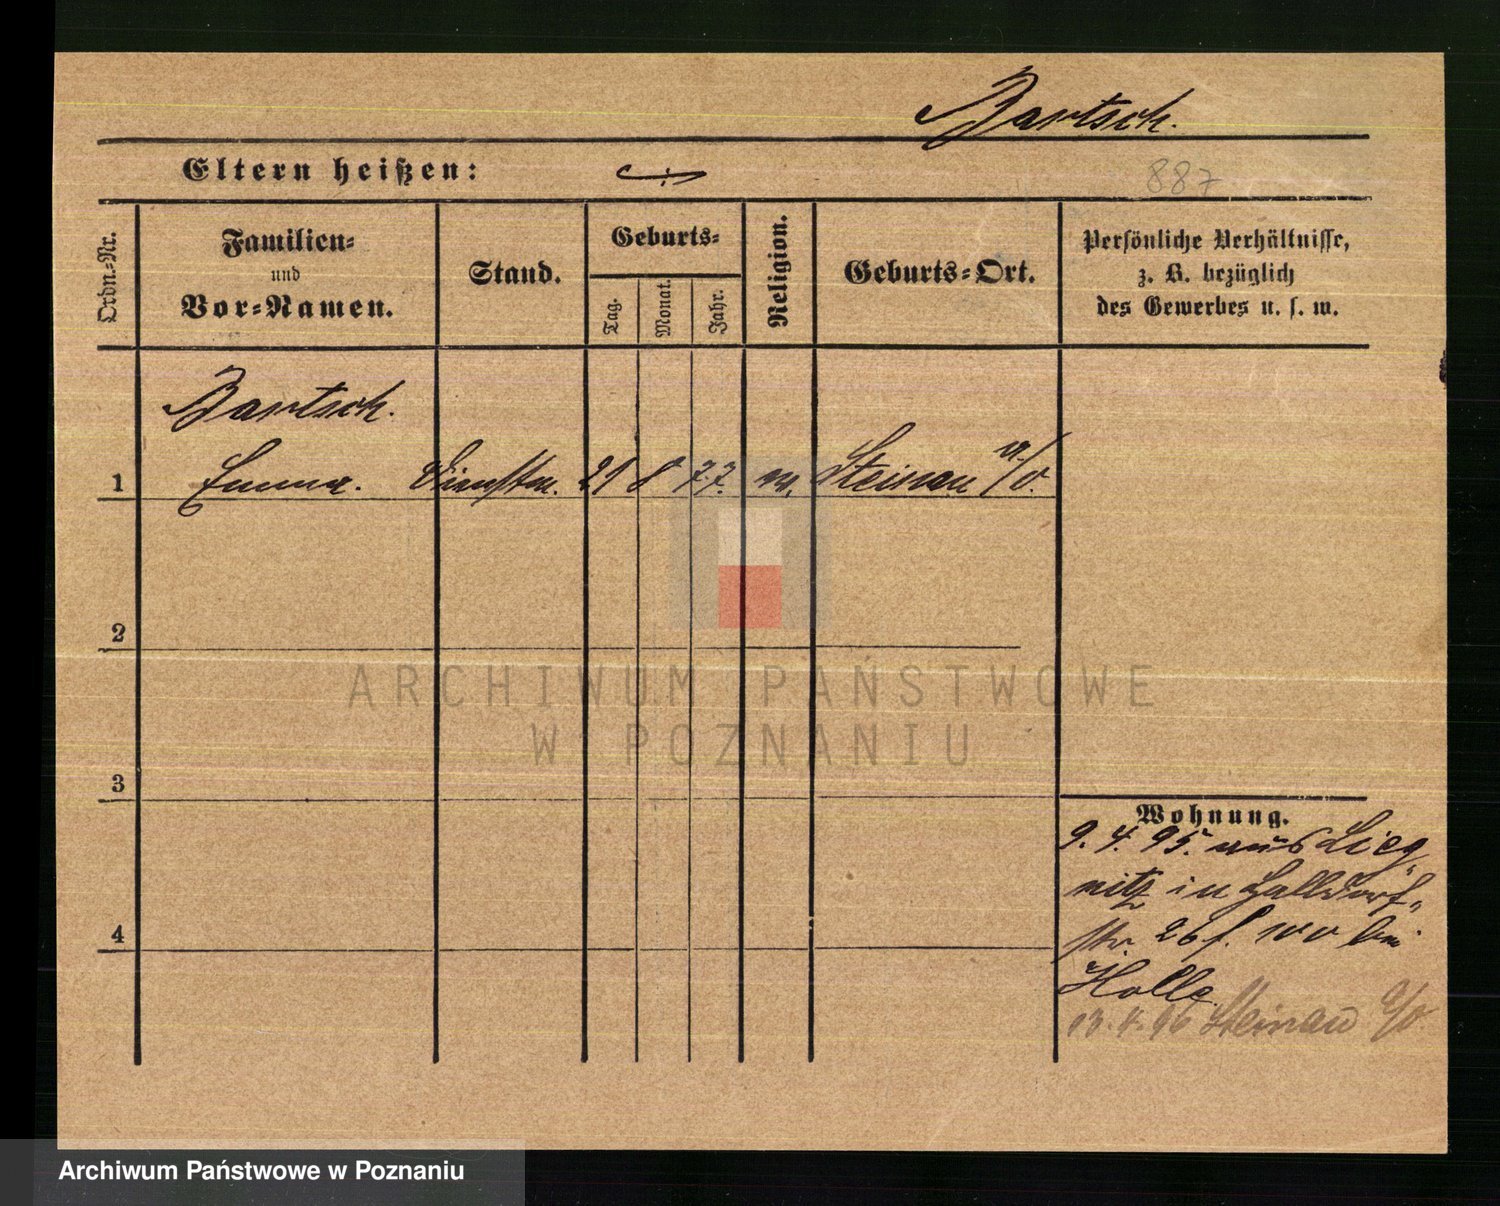 Bartsch.
Eltern heißen:
887
Ordn.-Nr.
Familien-
und
Vor-Namen.
Stand.
Geburts-
Tag.
Monat.
Jahr.
Religion.
Geburts-Ort.
Persönliche Verhältnisse,
z. B. bezüglich
des Gewerbes u. s. w.
Bartsch.
1 Emma. Dienstm. 21 8 77. Steinau a/O.
2
3
4
Wohnung.
9. 4. 95. aus Lieg
nitz in Halldorf-
str. 26 bei
Holle
13. 4. 96 Steinau a/O
ARCHIWUM PAŃSTWOWE
W POZNANIU
Archiwum Państwowe w Poznaniu